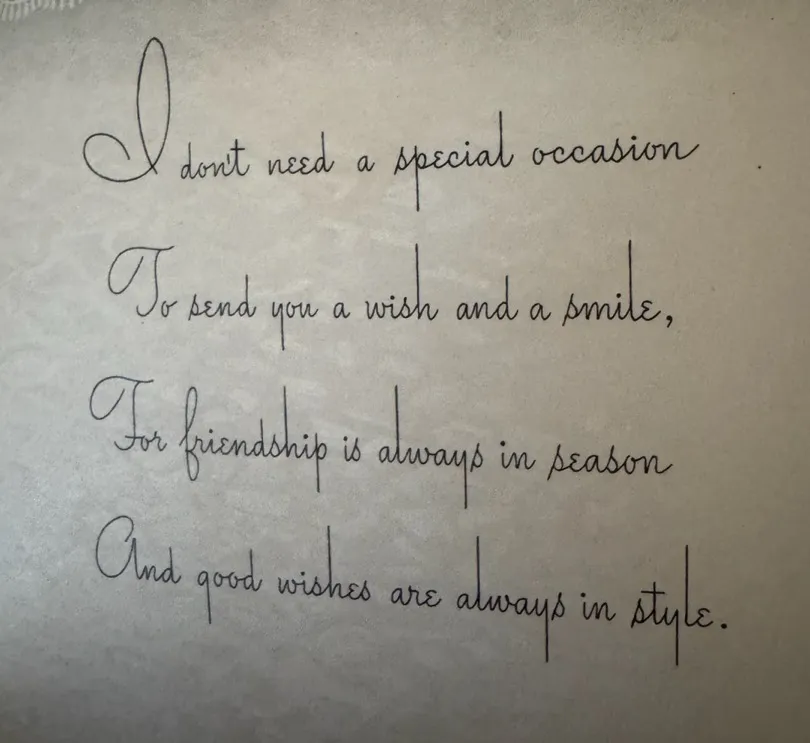 I don't need a special occasion
To send you a wish and a smile,
For friendship is always in season
And good wishes are always in style.